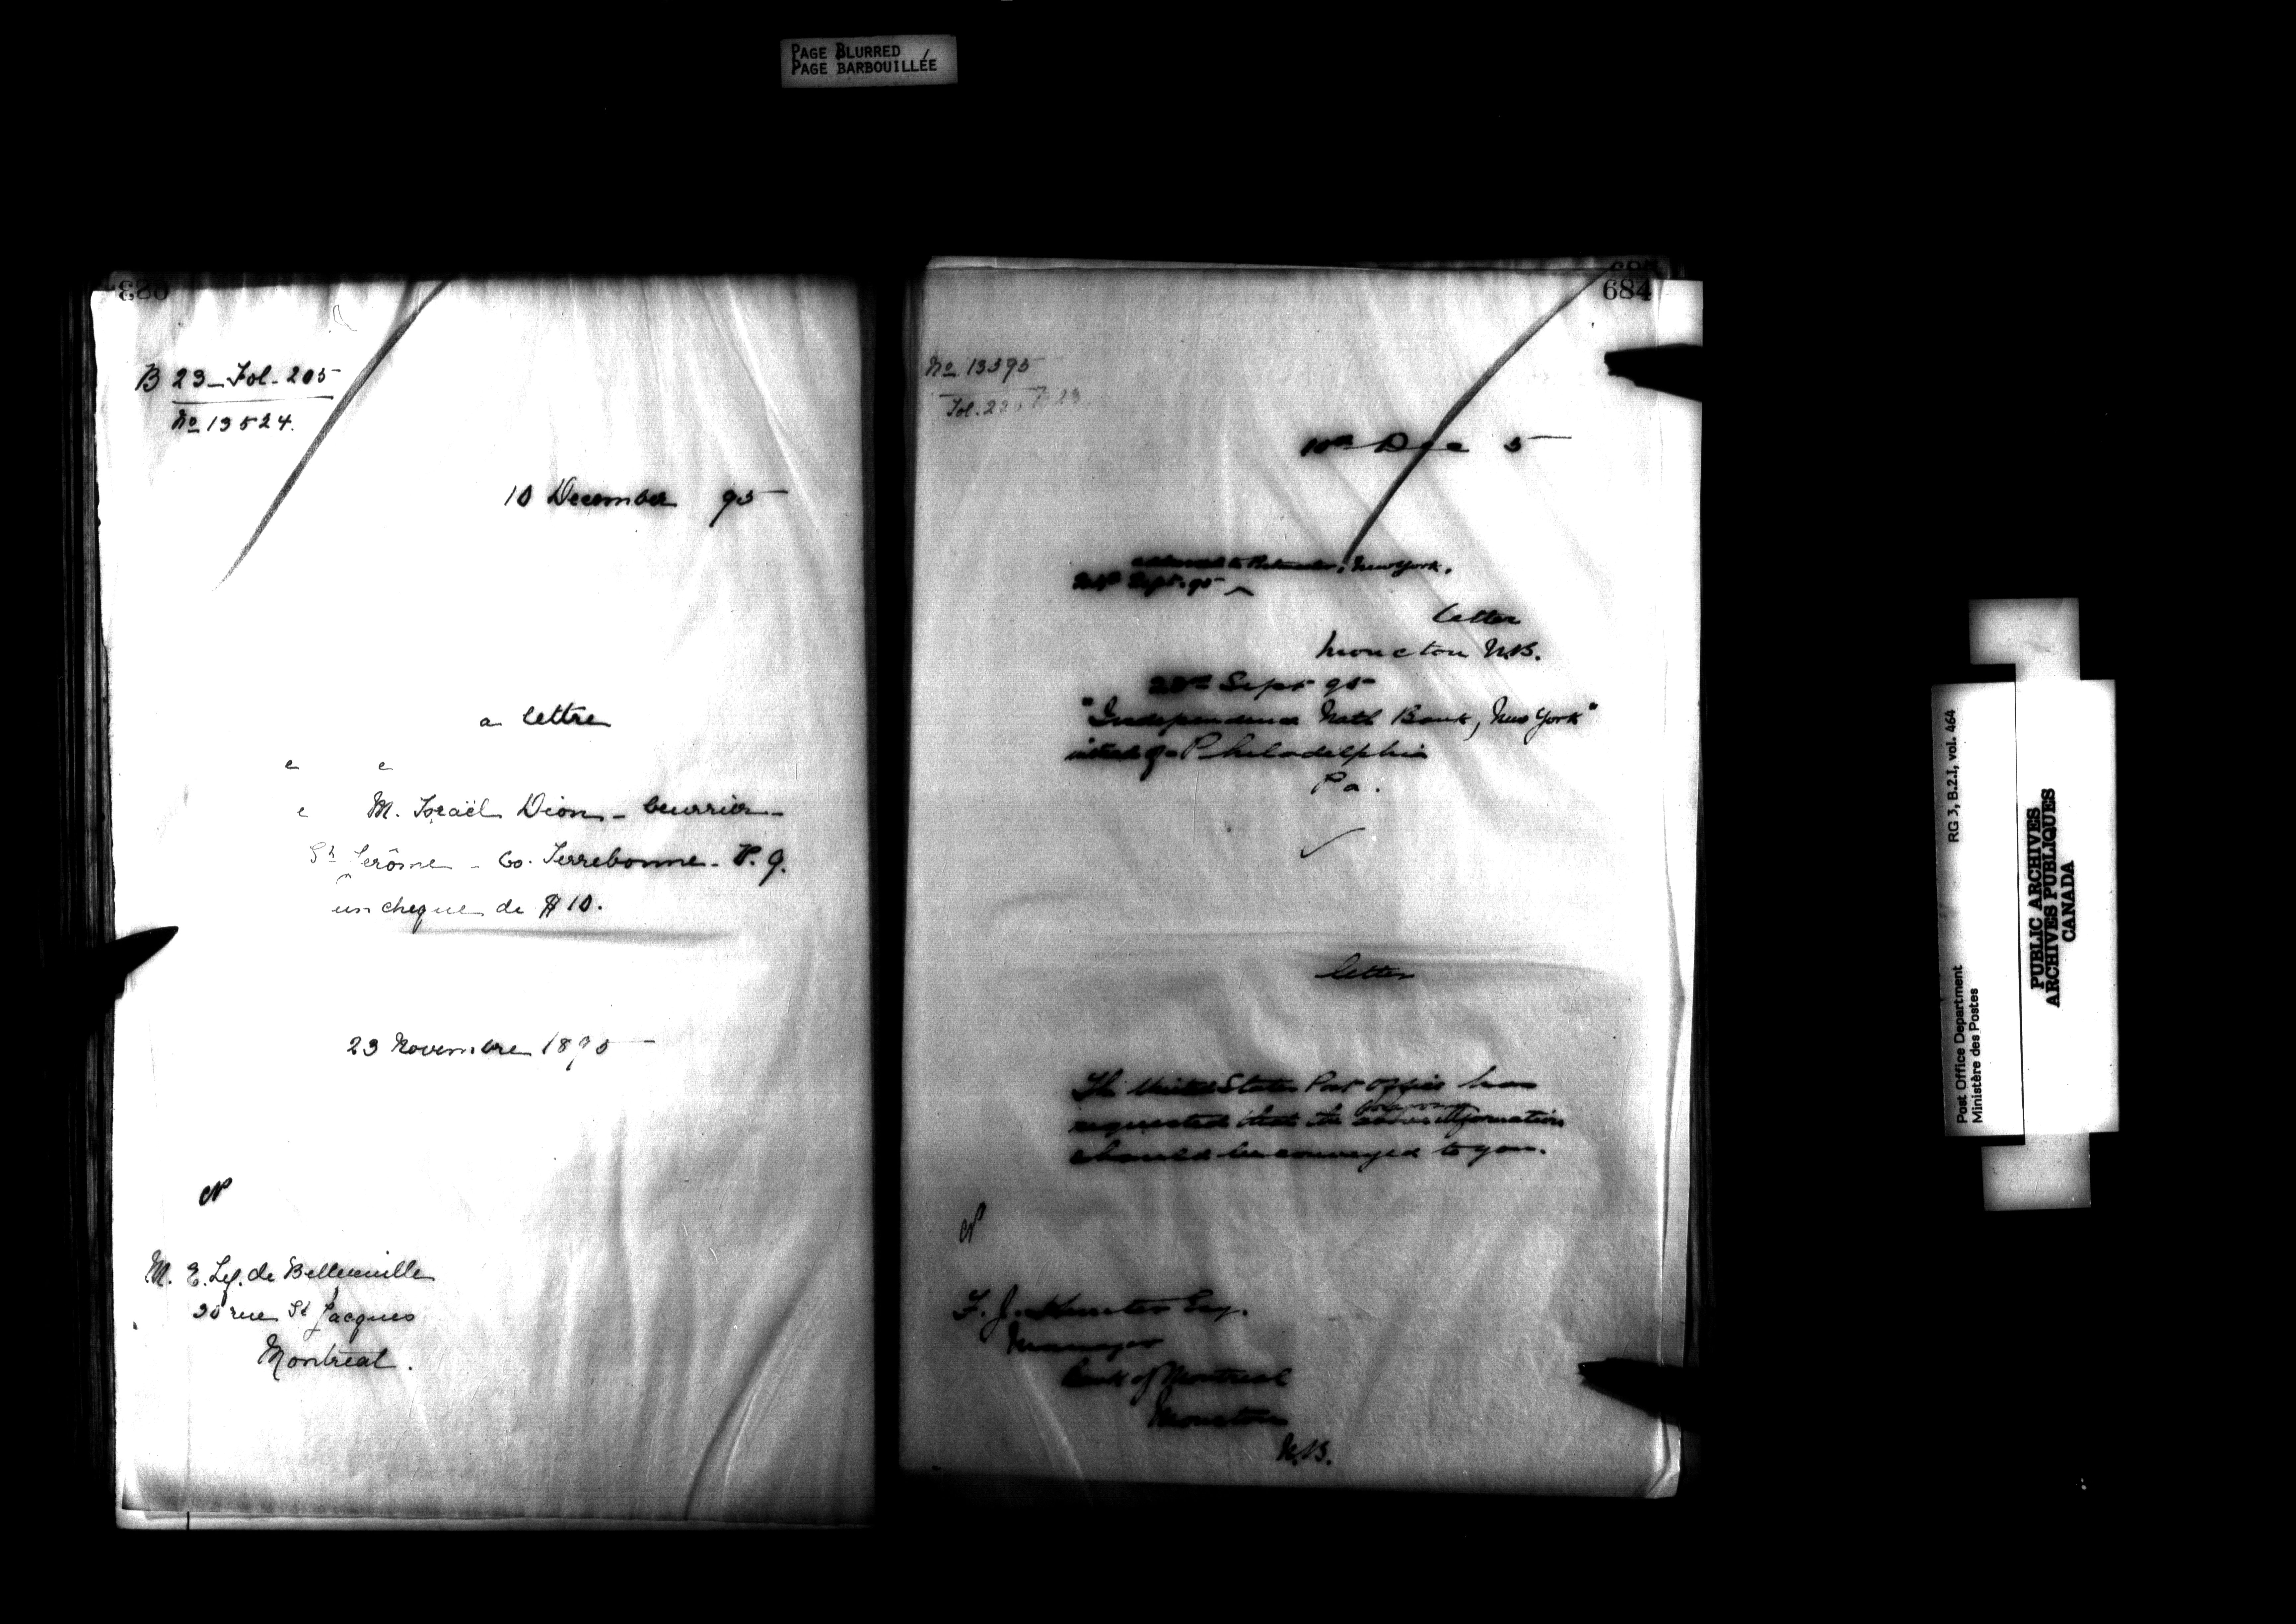 PAGE BLURRED
PAGE BARBOUILLÉE
683
B 23 - Fol - 205
No 13524.
10 December 95
a lettre
e e
e M. Israël Dion - beurrier -
St Jérôme - Co. Terrebonne - P. Q.
un cheque de $10.
23 Novembre 1895
M. E. Lef. de Bellefeuille
rue St Jacques
Montreal.
684
No 13395
Fol. B 23.
10th Dec 5
addressed to Postmaster, New York,
Sept. 95 ^
letter
Moncton N.B.
Sept 95
"Independence Natl Bank, New York"
instead of Philadelphia
Pa.
letter
The United States Post Office has
requested that the information
should be conveyed to you.
F. J. Hunter Esq.
Manager
Bank of Montreal
Moncton
N.B.
Post Office Department
Ministère des Postes
RG 3, B.2.I, vol. 464
PUBLIC ARCHIVES
ARCHIVES PUBLIQUES
CANADA